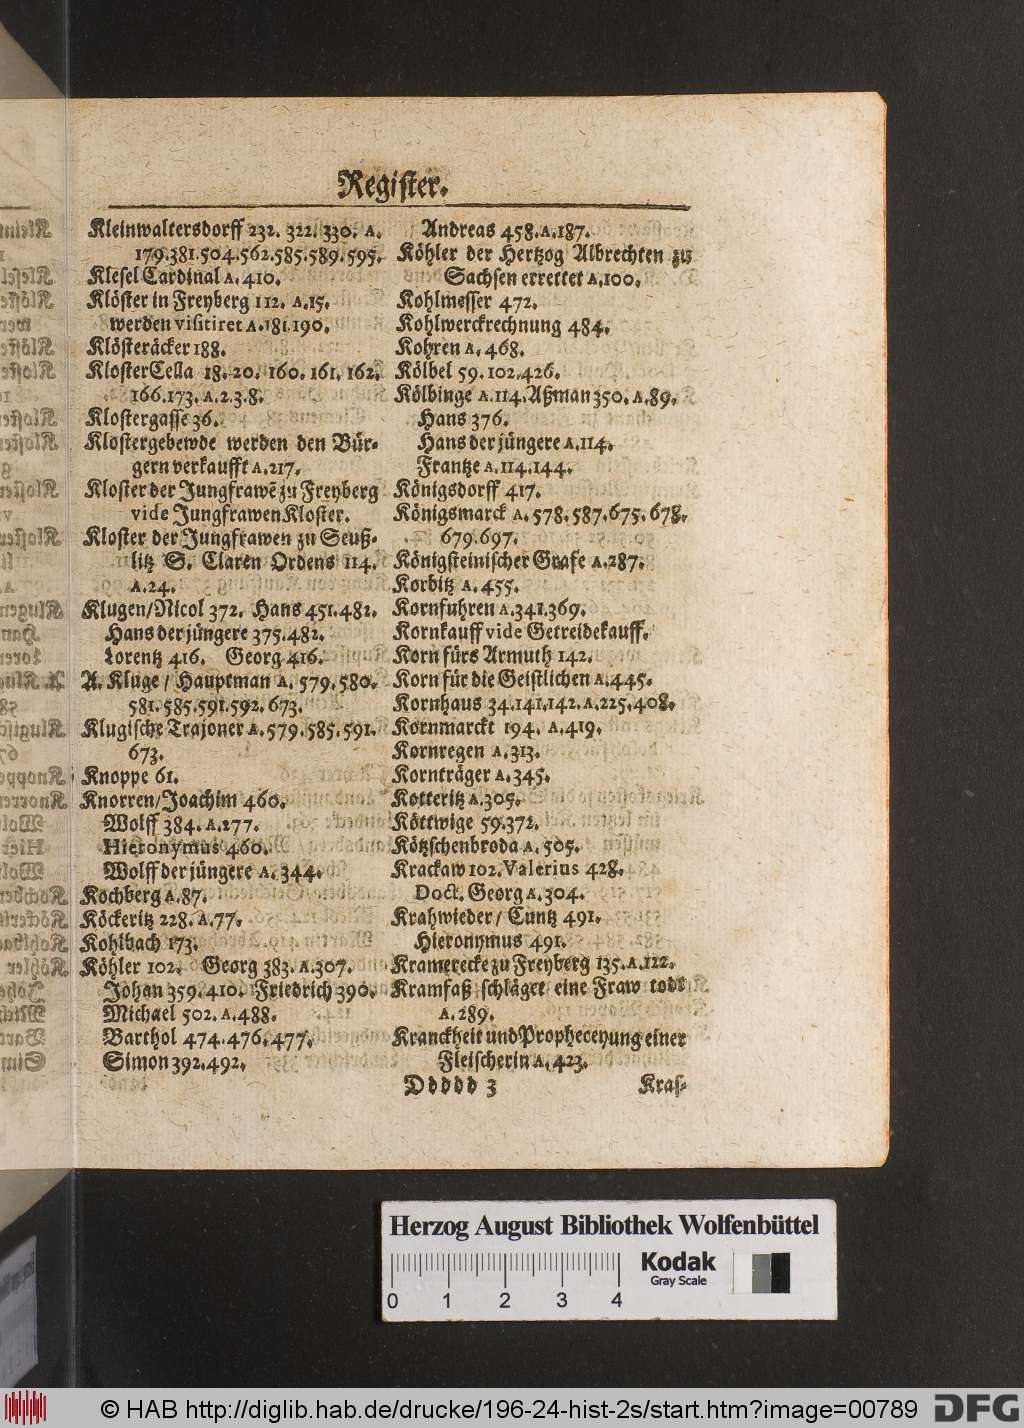 Register.
Kleinwaltersdorff 232. 322. 330. A.
179.381.504.562.585.589.595.
Klesel Cardinal A. 410.
Klöster in Freyberg 112. A.15.
werden visitiret A.181.190.
Klösteräcker 188.
KlosterCella 18. 20. 160. 161. 162.
166.173. A.2.3.8.
Klostergasse 36.
Klostergebewde werden den Bür-
gern verkaufft A.217.
Kloster der Jungfrawē zu Freyberg
vide JungfrawenKloster.
Kloster der Jungfrawen zu Seuß-
litz S. Claren Ordens 114.
A.24.
Klugen/Nicol 372. Hans 451.482.
Hans der jüngere 375.482.
Lorentz 416. Georg 416.
A. Kluge / Hauptman A. 579.580.
581.585.591.592. 673.
Klugische Trajoner A.579.585.591.
673.
Knoppe 61.
Knorren/Joachim 460.
Wolff 384. A.277.
Hieronymus 460.
Wolff der jüngere A. 344.
Kochberg A.87.
Köckeritz 228. A.77.
Kohlbach 173.
Köhler 102. Georg 383. A.307.
Johan 359.410. Friedrich 390.
Michael 502. A.488.
Barthol 474.476.477.
Simon 392.492.
Andreas 458.A.187.
Köhler der Hertzog Albrechten zu
Sachsen errettet A.100.
Kohlmesser 472.
Kohlwerckrechnung 484.
Kohren A. 468.
Kölbel 59.102.426.
Kölbinge A.114.Aßman 350. A.89.
Hans 376.
Hans der jüngere A.114.
Frantze A.114.144.
Königsdorff 417.
Königsmarck A. 578.587.675.678.
679.697.
Königsteinischer Grafe A.287.
Korbitz A.455.
Kornfuhren A.341.369.
Kornkauff vide Getreidekauff.
Korn fürs Armuth 142.
Korn für die Geistlichen A.445.
Kornhaus 34.141.142.A.225.408.
Kornmarckt 194. A.419.
Kornregen A.313.
Kornträger A.345.
Kotteritz A.305.
Köttwige 59.372.
Kötzschenbroda A. 505.
Krackaw 102. Valerius 428.
Doct. Georg A.304.
Krahwieder / Cuntz 491.
Hieronymus 491.
Kramerecke zu Freyberg 135.A.122.
Kramfaß schläget eine Fraw todt
A.289.
Kranckheit und Propheceyung einer
Fleischerin A.423.
Ddddd 3 Kras-
Herzog August Bibliothek Wolfenbüttel
Kodak
Gray Scale
0 1 2 3 4
© HAB http://diglib.hab.de/drucke/196-24-hist-2s/start.htm?image=00789
DFG